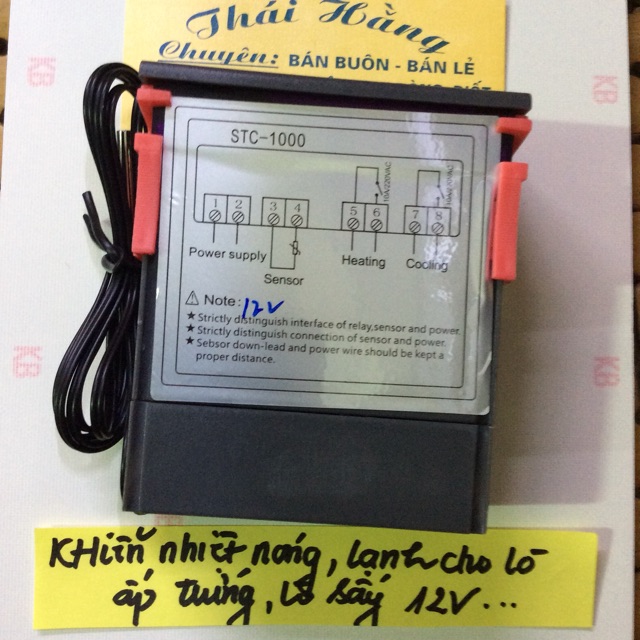 Thái Hằng
Chuyên: BÁN BUÔN - BÁN LẺ
STC-1000
10A/220VAC
10A/220VAC
1 2 3 4 5 6 7 8
Power supply
Sensor
Heating
Cooling
Note: 12V
★ Strictly distinguish interface of relay,sensor and power.
★ Strictly distinguish connection of sensor and power.
★ Sebsor down-lead and power wire should be kept a
proper distance.
KHiển nhiệt nóng, lạnh cho lò
ấp trứng, lò sấy 12V...
KB
KB
KB
KB
KB